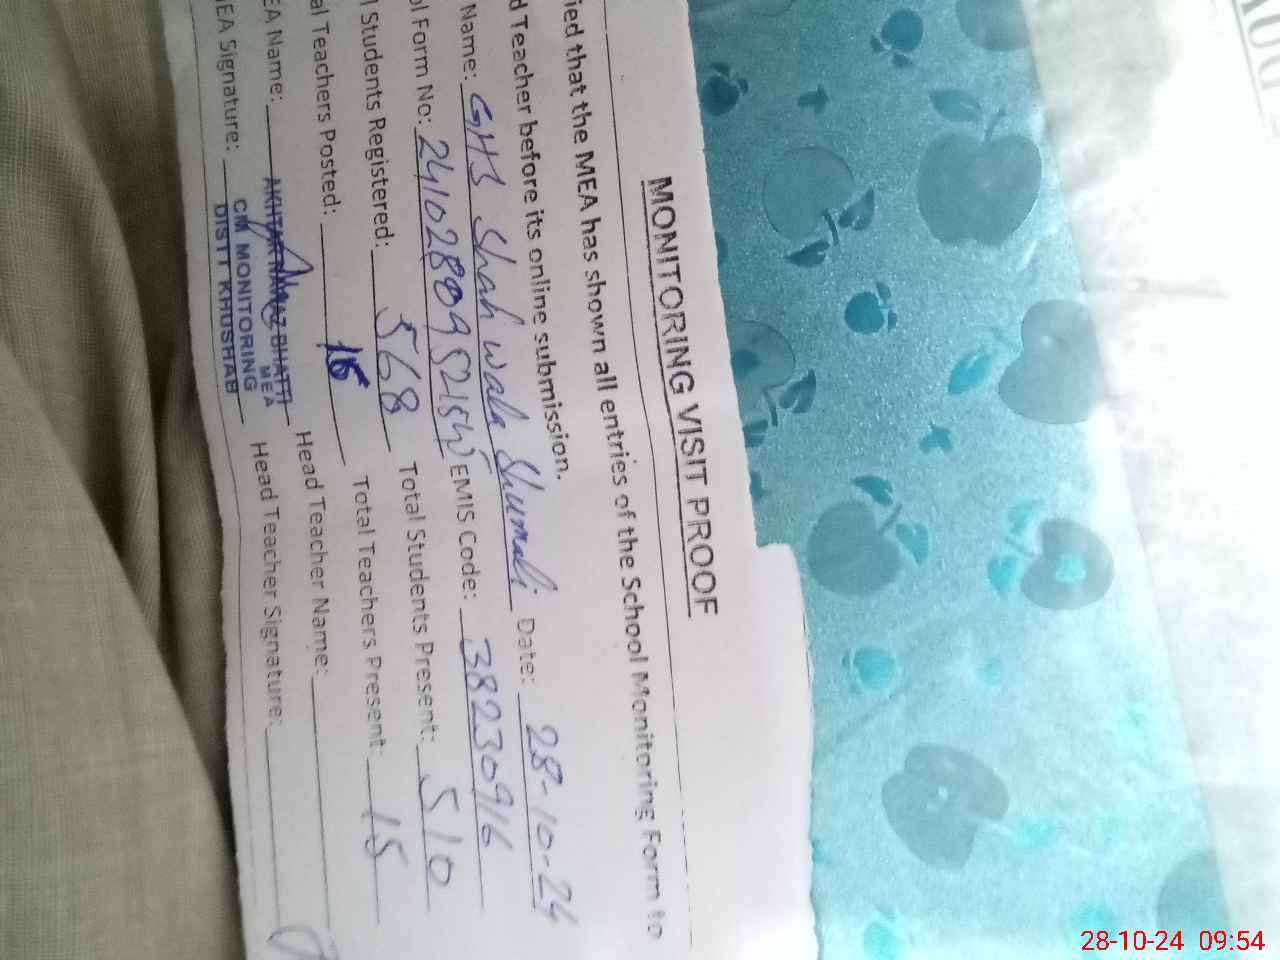 MONITORING VISIT PROOF
ied that the MEA has shown all entries of the School Monitoring Form to
d Teacher before its online submission.
Name: GHS Shah wala Shumali Date: 28-10-24
ol Form No: EMIS Code: 38230916
l Students Registered: 568 Total Students Present: 510
al Teachers Posted: Total Teachers Present: 15
EA Name: Head Teacher Name:
MEA Signature: Head Teacher Signature:
BHATTI
MEA
CM MONITORING
DISTT KHUSHAB
28-10-24 09:54